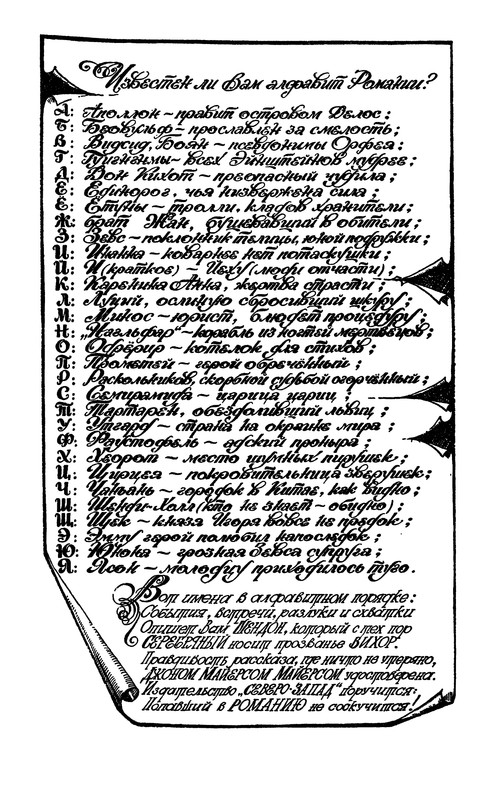 Известен ли Вам алфавит Романии?
А: Аполлон – правит островом Делос;
Б: Беовульф – прославлен за смелость;
В: Видсид, Боян – псевдонимы Орфея;
Г: Гуигнгнмы – всех Эйнштейнов мудрее;
Д: Дон Кихот – преопасный чудила;
Е: Единорог, чья низвержена сила;
Ё: Ётуны – тролли, кладов хранители;
Ж: брат Жан, бушевавший в обители;
З: Зевс – поклонник телицы, юной подружки;
И: Инанна – коварнее нет потаскушки;
Й: И (краткое) – Йеху (люди отчасти);
К: Каренина Анна, жертва страсти;
Л: Луций, ослиную сбросивший шкуру;
М: Минос – юрист, блюдет процедуру;
Н: „Нагльфар" – корабль из ногтей мертвецов;
О: Одрёрир – котелок для стихов;
П: Прометей – герой обречённый;
Р: Раскольников, скорбной судьбой огорчённый;
С: Семирамида – царица цариц;
Т: Тартарен, обездоливший львиц;
У: Утгард – страна на окраине мира;
Ф: Фаустофель – адский проныра;
Х: Хеорот – место шумных пирушек;
Ц: Цирцея – покровительница зверушек;
Ч: Чанъань – городок в Китае, как видно;
Ш: Шенди-Холл (кто не знает – обидно);
Щ: Щек – князя Игоря вовсе не предок;
Э: Эмму герой полюбил напоследок;
Ю: Юнона – грозная Зевса супруга;
Я: Ясон – молодцу приходилось туго.
Вот имена в алфавитном порядке:
События, встречи, разлуки и схватки
Опишет Вам ШЕНДОН, который с тех пор
СЕРЕБРЯНЫЙ носит прозванье ВИХОР.
Правдивость рассказа, где ничто не утеряно,
ДЖОНОМ МАЙЕРСОМ МАЙЕРСОМ удостоверена.
Издательство „СЕВЕРО-ЗАПАД" поручится:
Попавший в РОМАНИЮ не соскучится!